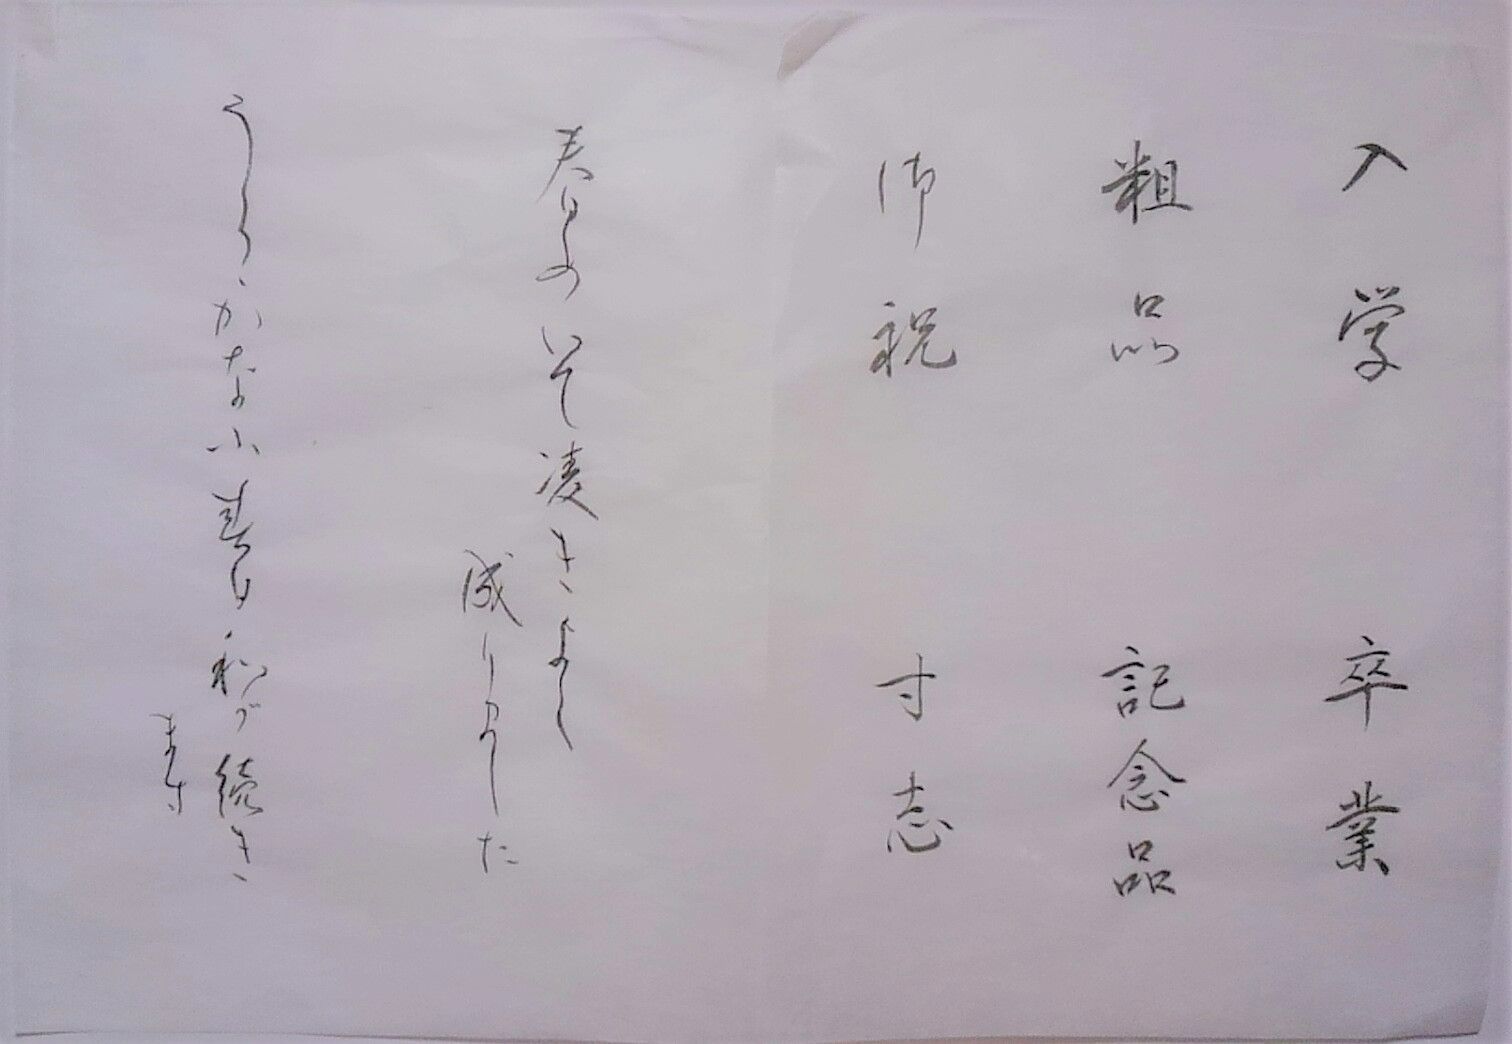 入学 卒業
粗品 記念品
御祝 寸志
春めいて凌ぎよく
成りました
うららかな小春日和が続き
ます